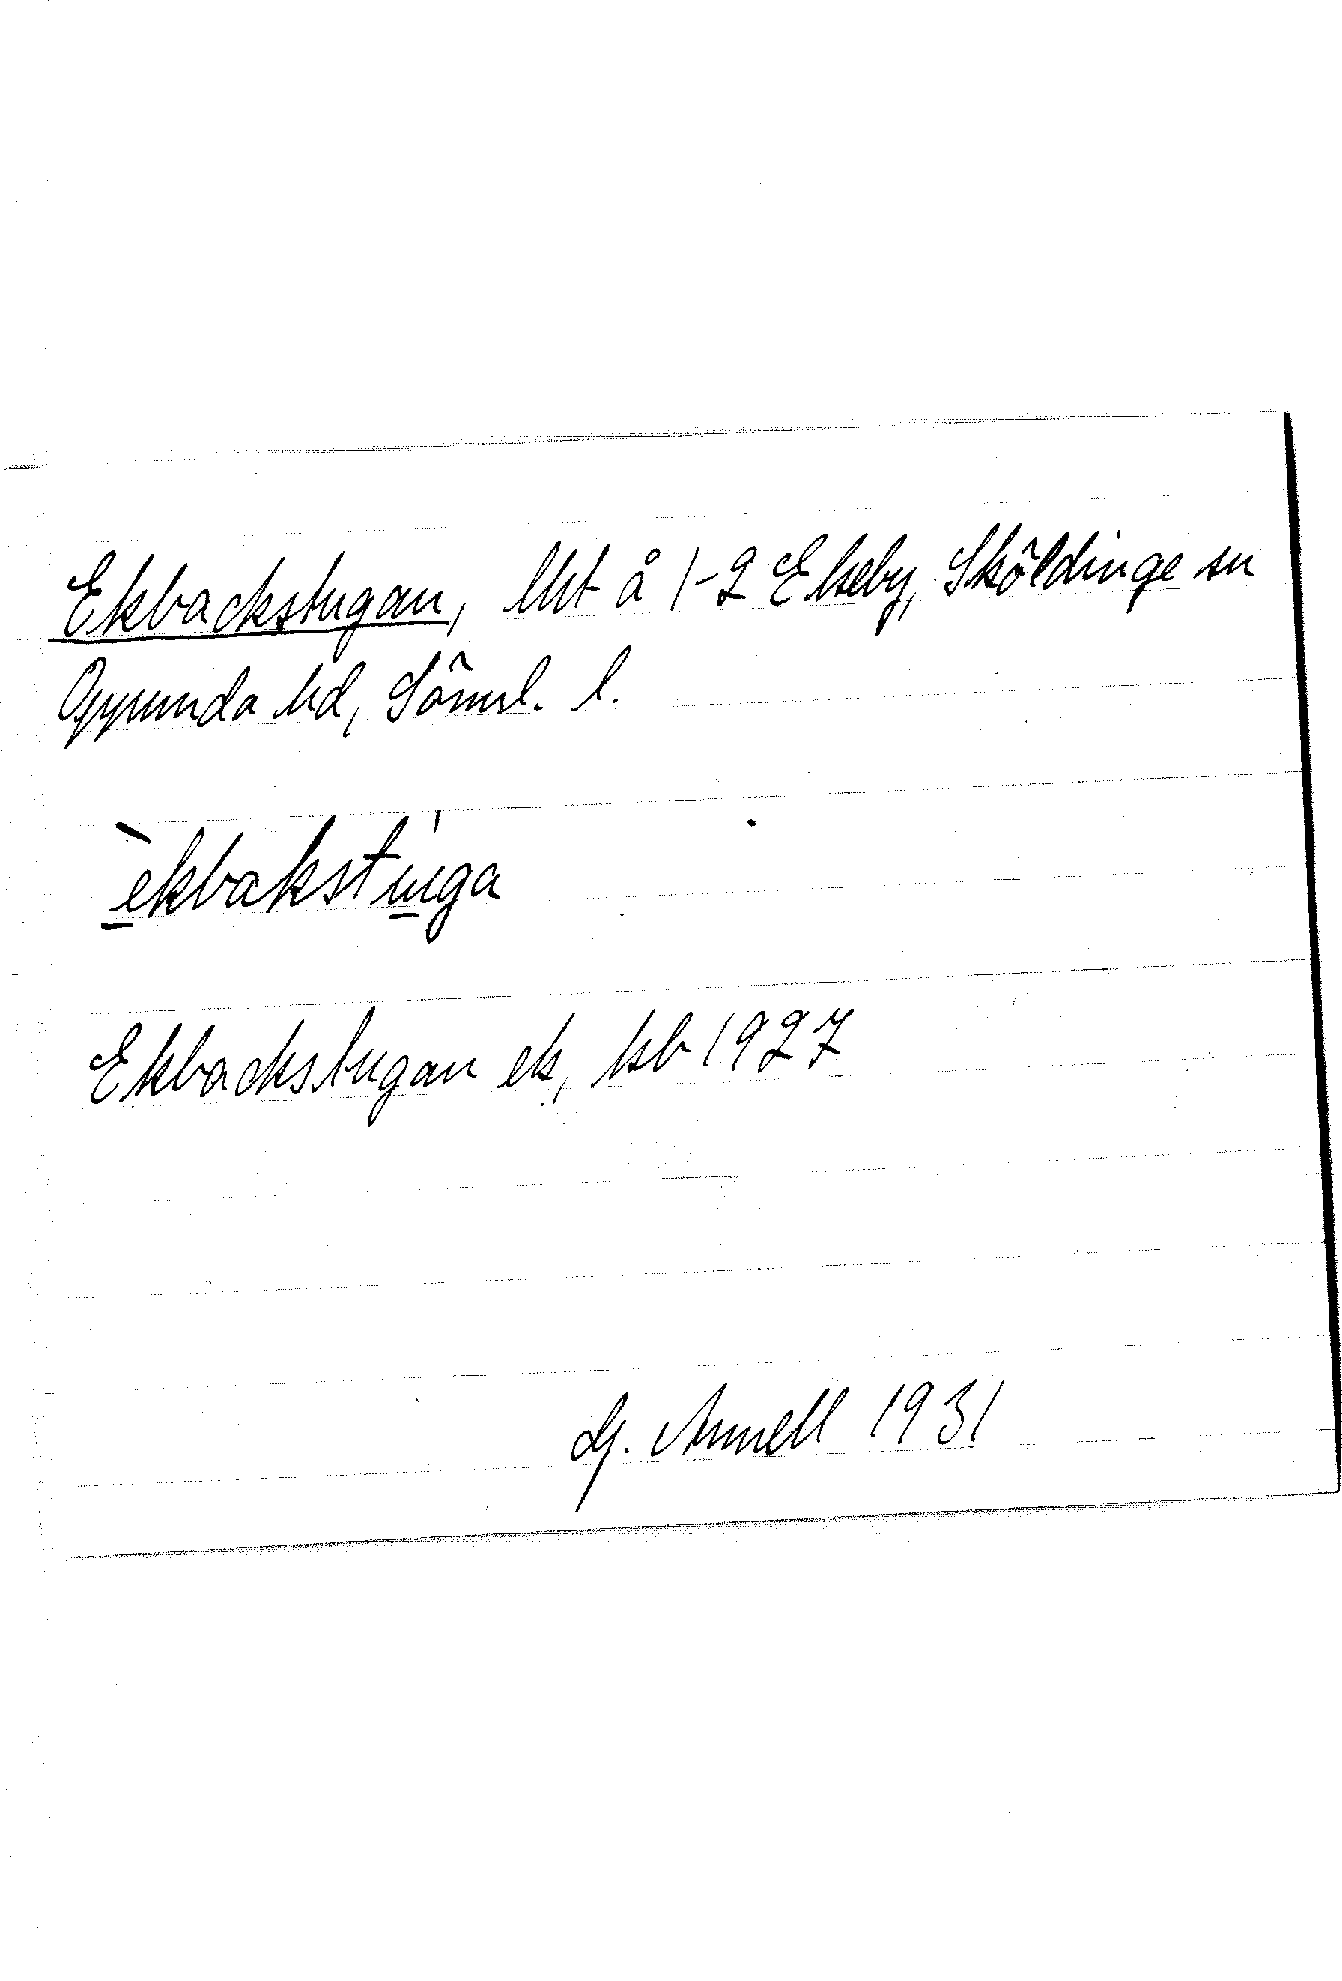 Ekbackstugan, lht å 1-2 Ekeby, Sköldinge sn
Oppunda hd, Söml. l.
èkbakstu̍ga
Ekbackstugan ek, kb 1927
G. Annell 1931